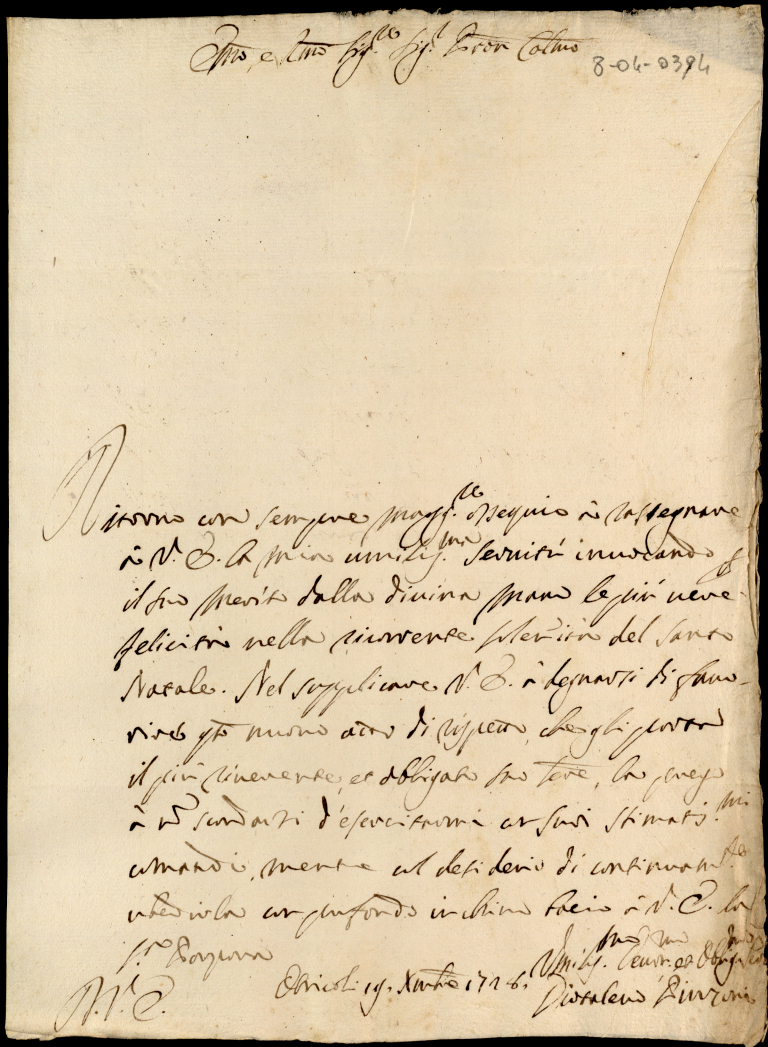 Emo, e Rmo Sig.re Sig.r Pron Colmo
8-04-0394
Ritorno con sempre magg.re ossequio à rassegnare
à V. E. la mia umilis.ma servitù invocando
il suo merito dalla divina mano le più vere
felicità nella ricorrente solennità del Santo
Natale. Nel supplicare V. E. à degnarsi di favo-
rire qto nuovo atto di rispetto, che gli porta
il più riverente, et obbligato suo serve, la prego
à scordarsi d'esercitarmi co suoi stimatis.mi
comandi, mentre col desiderio di continuam.te
ubedirla con profondo inchino bacio à V. E. la
Porpora
Otricoli 19. Xmbre 1728.
Umilis.mo Devot.mo et Oblig.mo
Di V. E.